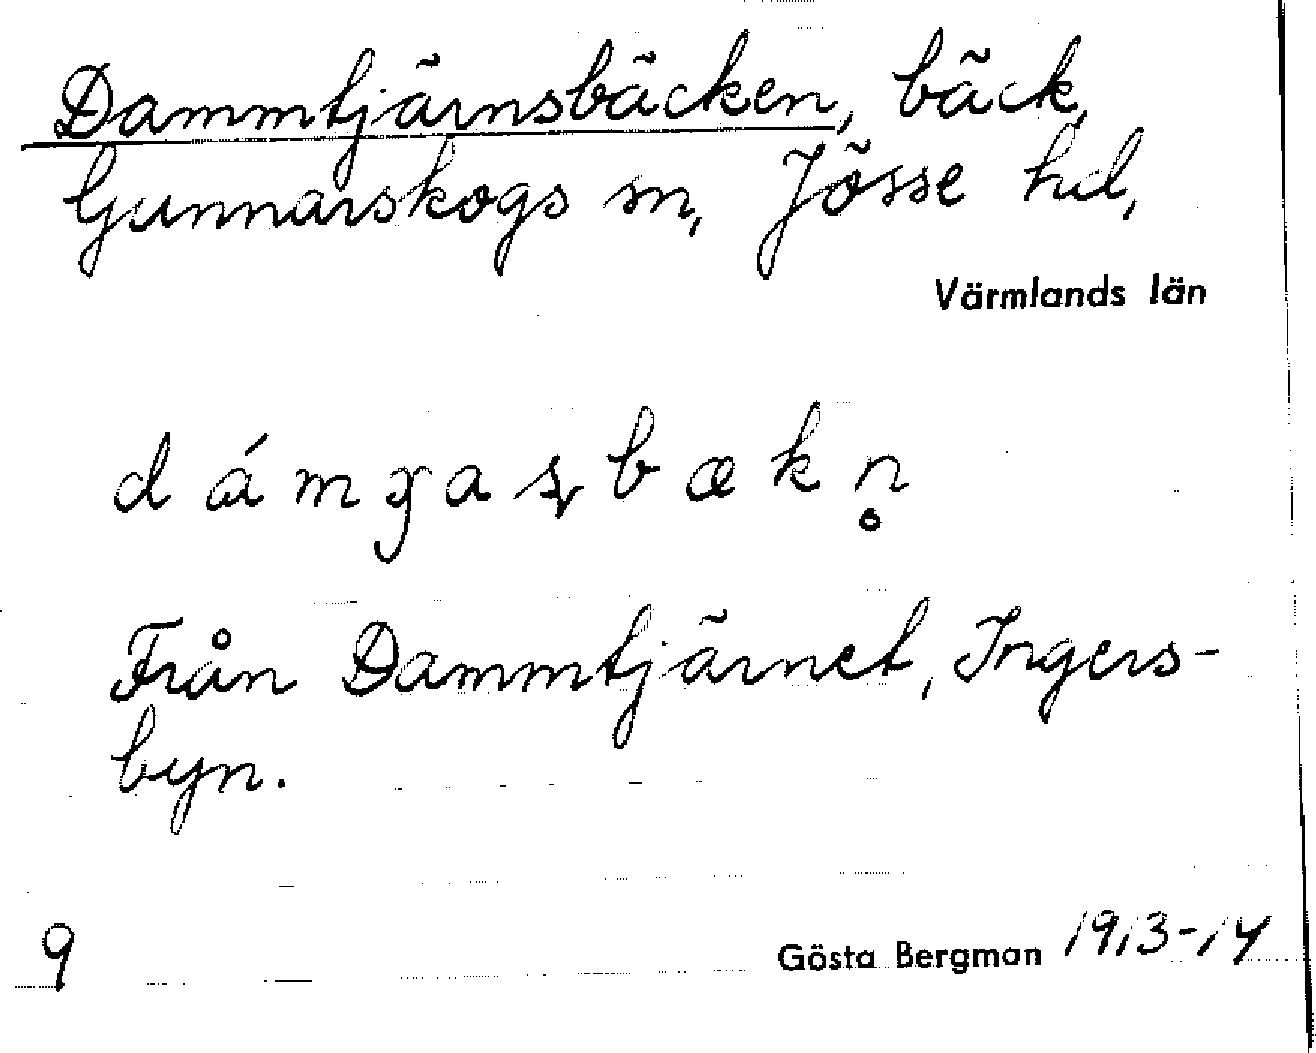 Dammtjärnsbäcken, bäck,
Gunnarskogs sn, Jösse hd,
Värmlands län
dámɣaʂbækn̥
Från Dammtjärnet, Ingers-
byn.
9 Gösta Bergman 1913-14